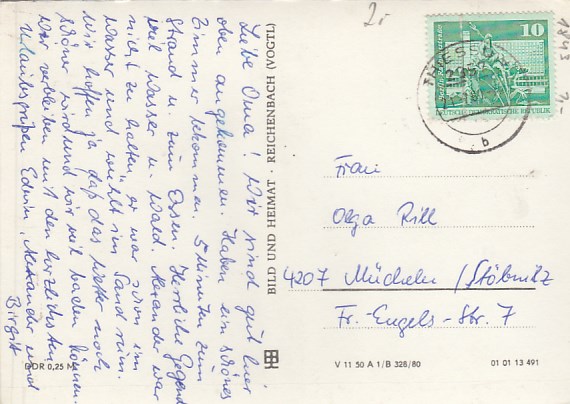 Liebe Oma! Wir sind gut hier
oben angekommen. Haben ein schönes
Zimmer bekommen. 5 Minuten zum
Strand u. zum Essen. Herrliche Gegend
weil Wasser u. Wald. Alexander war
nicht zu halten er war schon im
Wasser und wühlt im Sand rum.
Wir hoffen ja daß das Wetter noch
schöner wird und wir viel baden können.
Wir verbleiben mit den herzlichsten
Urlaubsgrüßen Edwin, Alexander und
Birgit
BILD UND HEIMAT · REICHENBACH (VOGTL)
2,-
10
DEUTSCHE DEMOKRATISCHE REPUBLIK
b
Frau
Olga Rill
4207 Mücheln /Stöbnitz
Fr.-Engels-Str. 7
DDR 0,25 M
V 11 50 A 1/B 328/80
01 01 13 491